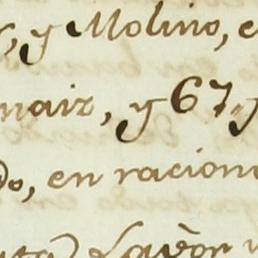 , y Molino, e
naiz, y 67 y
do, en racion
Lavor